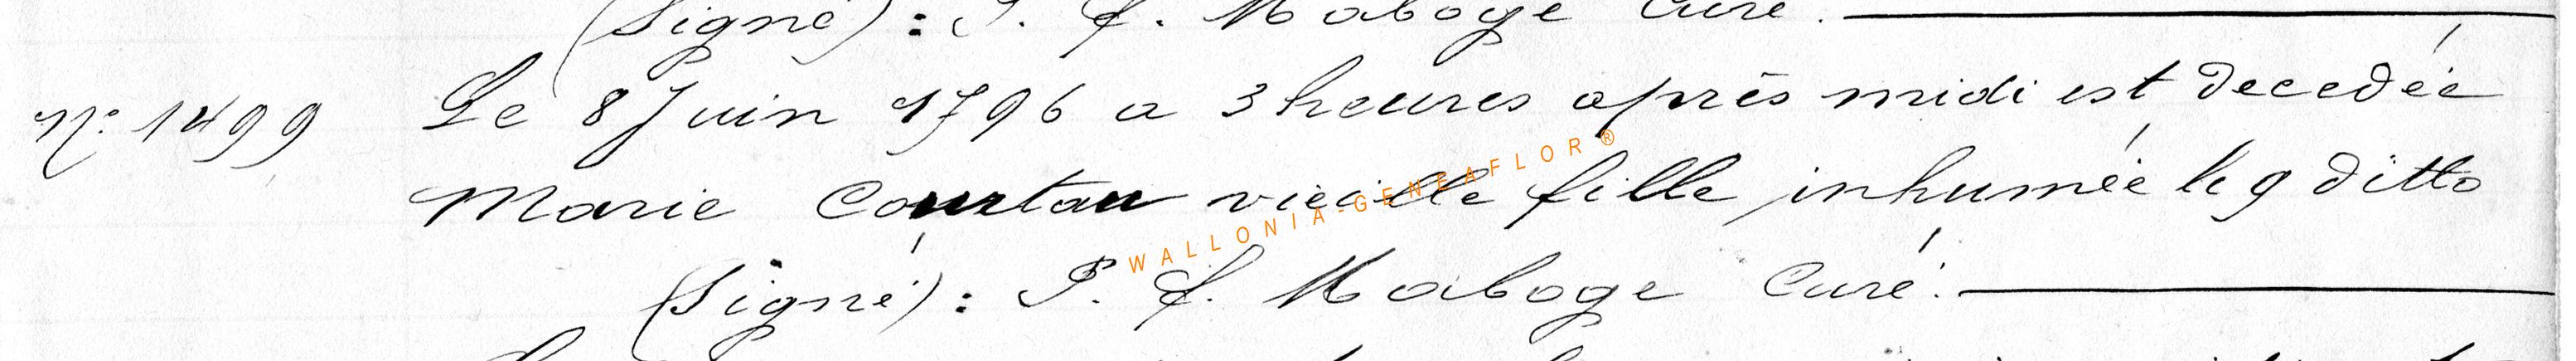 (Signé) : P. L. Maboge Curé.
N: 1499 Le 8 Juin 1796 a 3 heures après midi est decedée
Marie Courtau vieille fille inhumée le 9 ditto
WALLONIA-GENEAFLOR®
(Signé) : P. L. Maboge Curé.